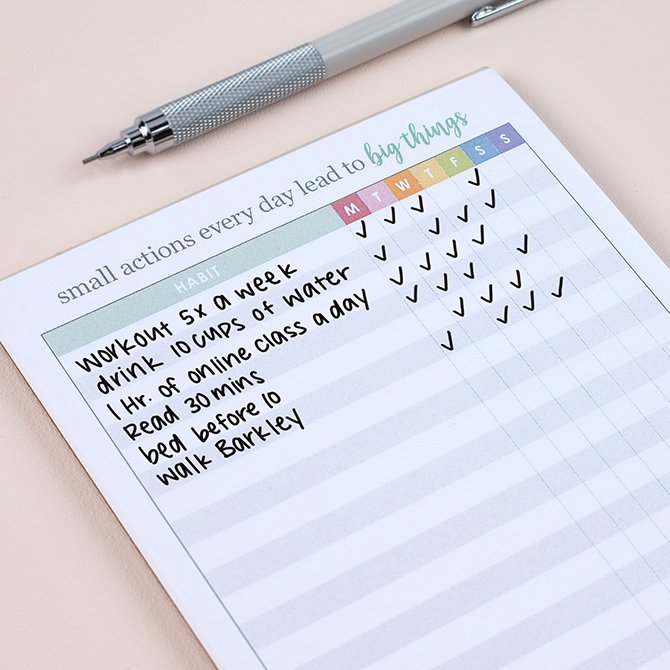 small actions every day lead to big things
HABIT M T W T F S S
workout 5x a week
drink 10 cups of water
1 Hr. of online class a day
Read 30 mins
bed before 10
walk Barkley